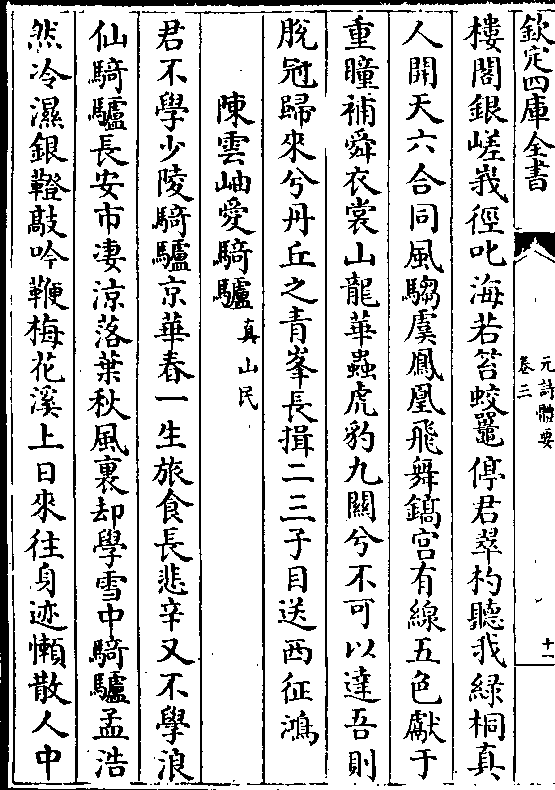 欽定四庫全書
元詩體要
卷三
十一
樓閣銀嵯峩徑叱海若笞蛟鼉停君翠杓聽我綠桐真
人開天六合同風騶虞鳳凰飛舞鎬宫有線五色獻于
重瞳補舜衣裳山龍華蟲虎豹九關兮不可以達吾則
脫冠歸來兮丹丘之青峯長揖二三子目送西征鴻
陳雲岫愛騎驢真山民
君不學少陵騎驢京華春一生旅食長悲辛又不學浪
仙騎驢長安市凄涼落葉秋風裏却學雪中騎驢孟浩
然冷濕銀鞍敲吟鞭梅花溪上日來往身迹懶散人中